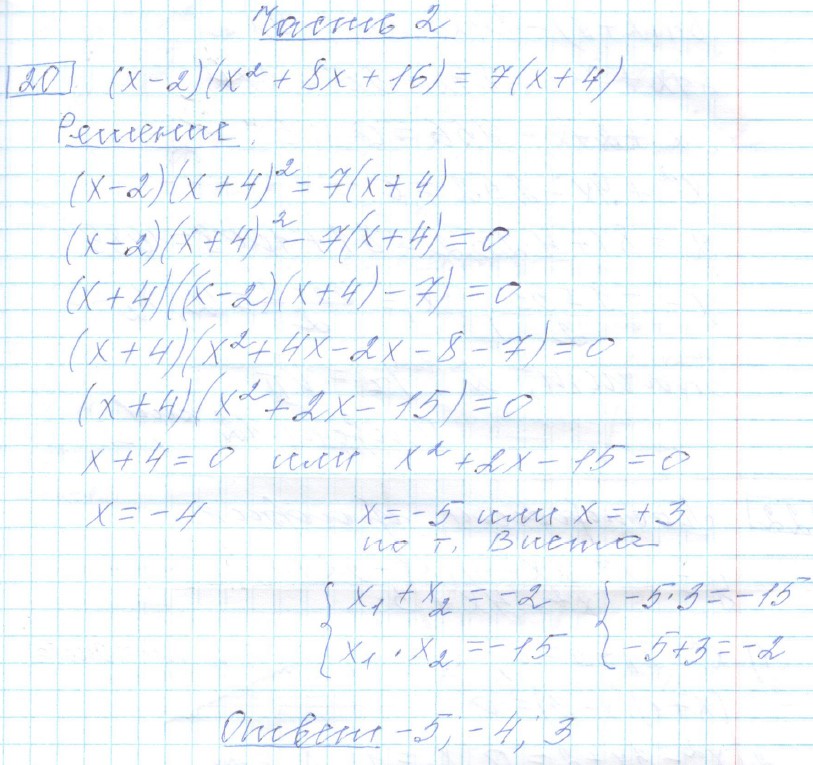 Часть 2
20 (x-2)(x² + 8x + 16) = 7(x+4)
Решение:
(x-2)(x+4)² = 7(x+4)
(x-2)(x+4)² - 7(x+4) = 0
(x+4)((x-2)(x+4) - 7) = 0
(x+4)(x² + 4x - 2x - 8 - 7) = 0
(x+4)(x² + 2x - 15) = 0
x + 4 = 0 или x² + 2x - 15 = 0
x = -4 x = -5 или x = +3
по т. Виета
{ x₁ + x₂ = -2 { -5·3 = -15
{ x₁ · x₂ = -15 { -5+3 = -2
Ответ -5; -4; 3